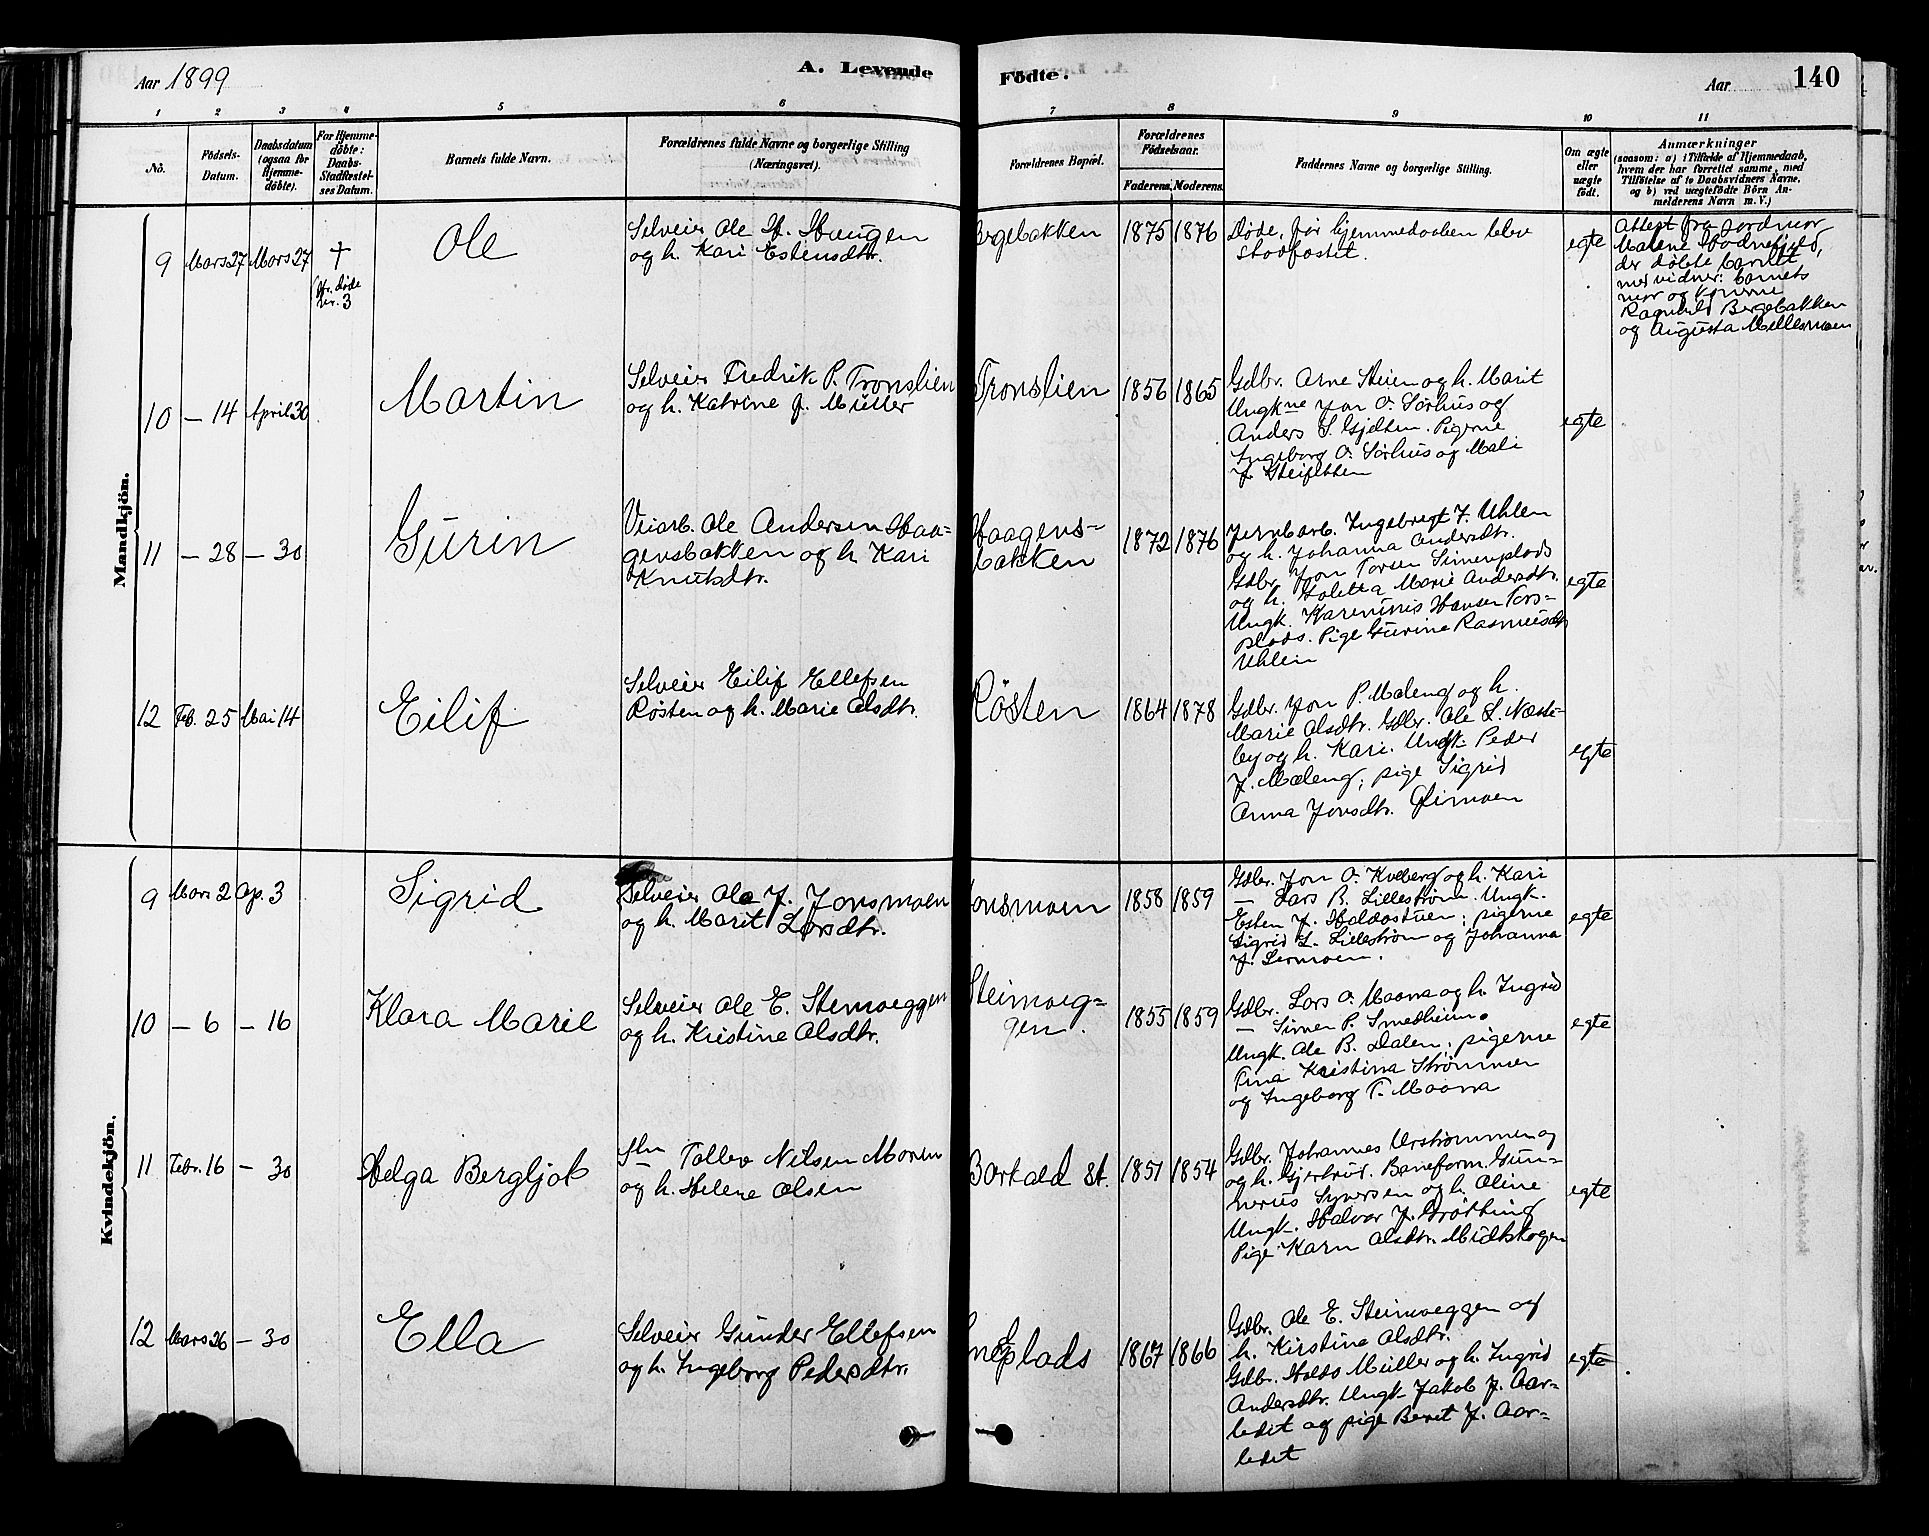 Aar 1899
A. Levende
Födte.
Aar
140
1
2
3
4
5
6
7
8
9
10
11
No.
Födsels-
Datum.
Daabsdatum
(ogsaa for
Hjemme-
döbte).
For Hjemme-
döbte:
Daabs-
Stadfæstel-
ses Datum.
Barnets fulde Navn.
Forældrenes fulde Navne og borgerlige Stilling
(Næringsvei).
Forældrenes Bopæl.
Forældrenes
Födselsaar.
Faderens.
Moderens.
Faddernes Navne og borgerlige Stilling.
Om ægte
eller
uægte
født.
Anmærkninger
(saasom: a) i Tilfælde af Hjemmedaab,
hvem der har forrettet samme, med
Tilföielse af to Daabsvidners Navne,
og b) ved uægtefödte Börn An-
melderens Navn m. V.)
Mandkjön.
9
Mars 27
Mars 27
†
Cfr. døde
nr. 3
Ole
Selveier Ole H. Haugen
og h. Kari Estensdtr.
Bergebakken
1875
1876
Døde, før hjemmedaaben blev
stadfæstet.
egte
Attest fra jordmor
Malene Hodnefjeld,
der døbte barnet
med vidner: barnets
mor og konerne
Ragnhild Bergebakken
og Augusta Mellesmoen
10
– 14
April 30
Martin
Selveier Fredrik P. Tronslien
og h. Katrine J. Müller
Tronslien
1856
1865
Gdbr. Arne Steien og h. Marit
Ungkne Jon O. Sørhus og
Anders S. Gjelten. Pigerne
Ingeborg O. Sørhus og Mali
J. Steifetten
egte
11
– 28
– 30
Gurin
Veiarb. Ole Andersen Haa-
gensbakken og h. Kari
Knutsdtr.
Haagens-
bakken
1872
1876
Jernbarb. Ingebrigt J. Uhlen
og h. Johanna Andersdtr.
Gdbr. Jon Torsen Simenplads
og h. Holetta Marie Andersdtr.
Ungk. Kareninis Hansen Tors-
plads. Pige Gurine Rasmusdtr
Uhlen
egte
12
Feb. 25
Mai 14
Eilif
Selveier Eilif Ellefsen
Røsten og h. Marie Olsdtr.
Røsten
1864
1878
Gdbr. Jon P. Moleng og h.
Marie Olsdtr. Gdbr. Ole L. Næste-
by og h. Kari. Ungk. Peder
J. Moleng; pige Sigrid
Anna Jonsdtr. Glimoen
egte
Kvindekjön.
9
Mars 2
Ap. 3
Sigrid
Selveier Ole J. Jonsmoen
og h. Marit Larsdtr.
Jonsmoen
1858
1859
Gdbr. Jon O. Kveberg og h. Kari
– Lars B. Lillestrøm. Ungk.
Esten J. Haldostuen; pigerne
Sigrid L. Lillestrøm og Johanna
J. Lermoen.
egte
10
– 6
– 16
Klara Marie
Selveier Ole E. Steimoeggen
og h. Kristine Olsdtr.
Steimoeg-
gen.
1855
1859
Gdbr. Lars O. Moana og h. Ingrid
– Simen P. Smedheim.
Ungk. Ole B. Dalen; pigerne
Tina Kristina Strømmen
og Ingeborg T. Moana
egte
11
Febr. 16
– 30
Helga Bergljot
Stm Tollev Nilsen Moren
og h. Helene Olsen
Barkald st.
1851
1854
Gdbr. Johannes Urstrømmen og
og h. Gjertrud. Baneform. Gun-
nerius Syversen og h. Oline
Ungk. Halvor J. Trøtting
Pige Karn Olsdtr. Midtskogen
egte
12
Mars 26
– 30
Ella
Selveier Gunder Ellefsen
og h. Ingeborg Pedersdtr.
Eneplads
1867
1866
Gdbr. Ole E. Steimoeggen og
h. Kirstine Olsdtr.
Gdbr. Haldo Müller og h. Ingrid
Andersdtr. Ungk. Jakob J. Aar-
ledet og pige Beret J. Aar-
ledet
egte